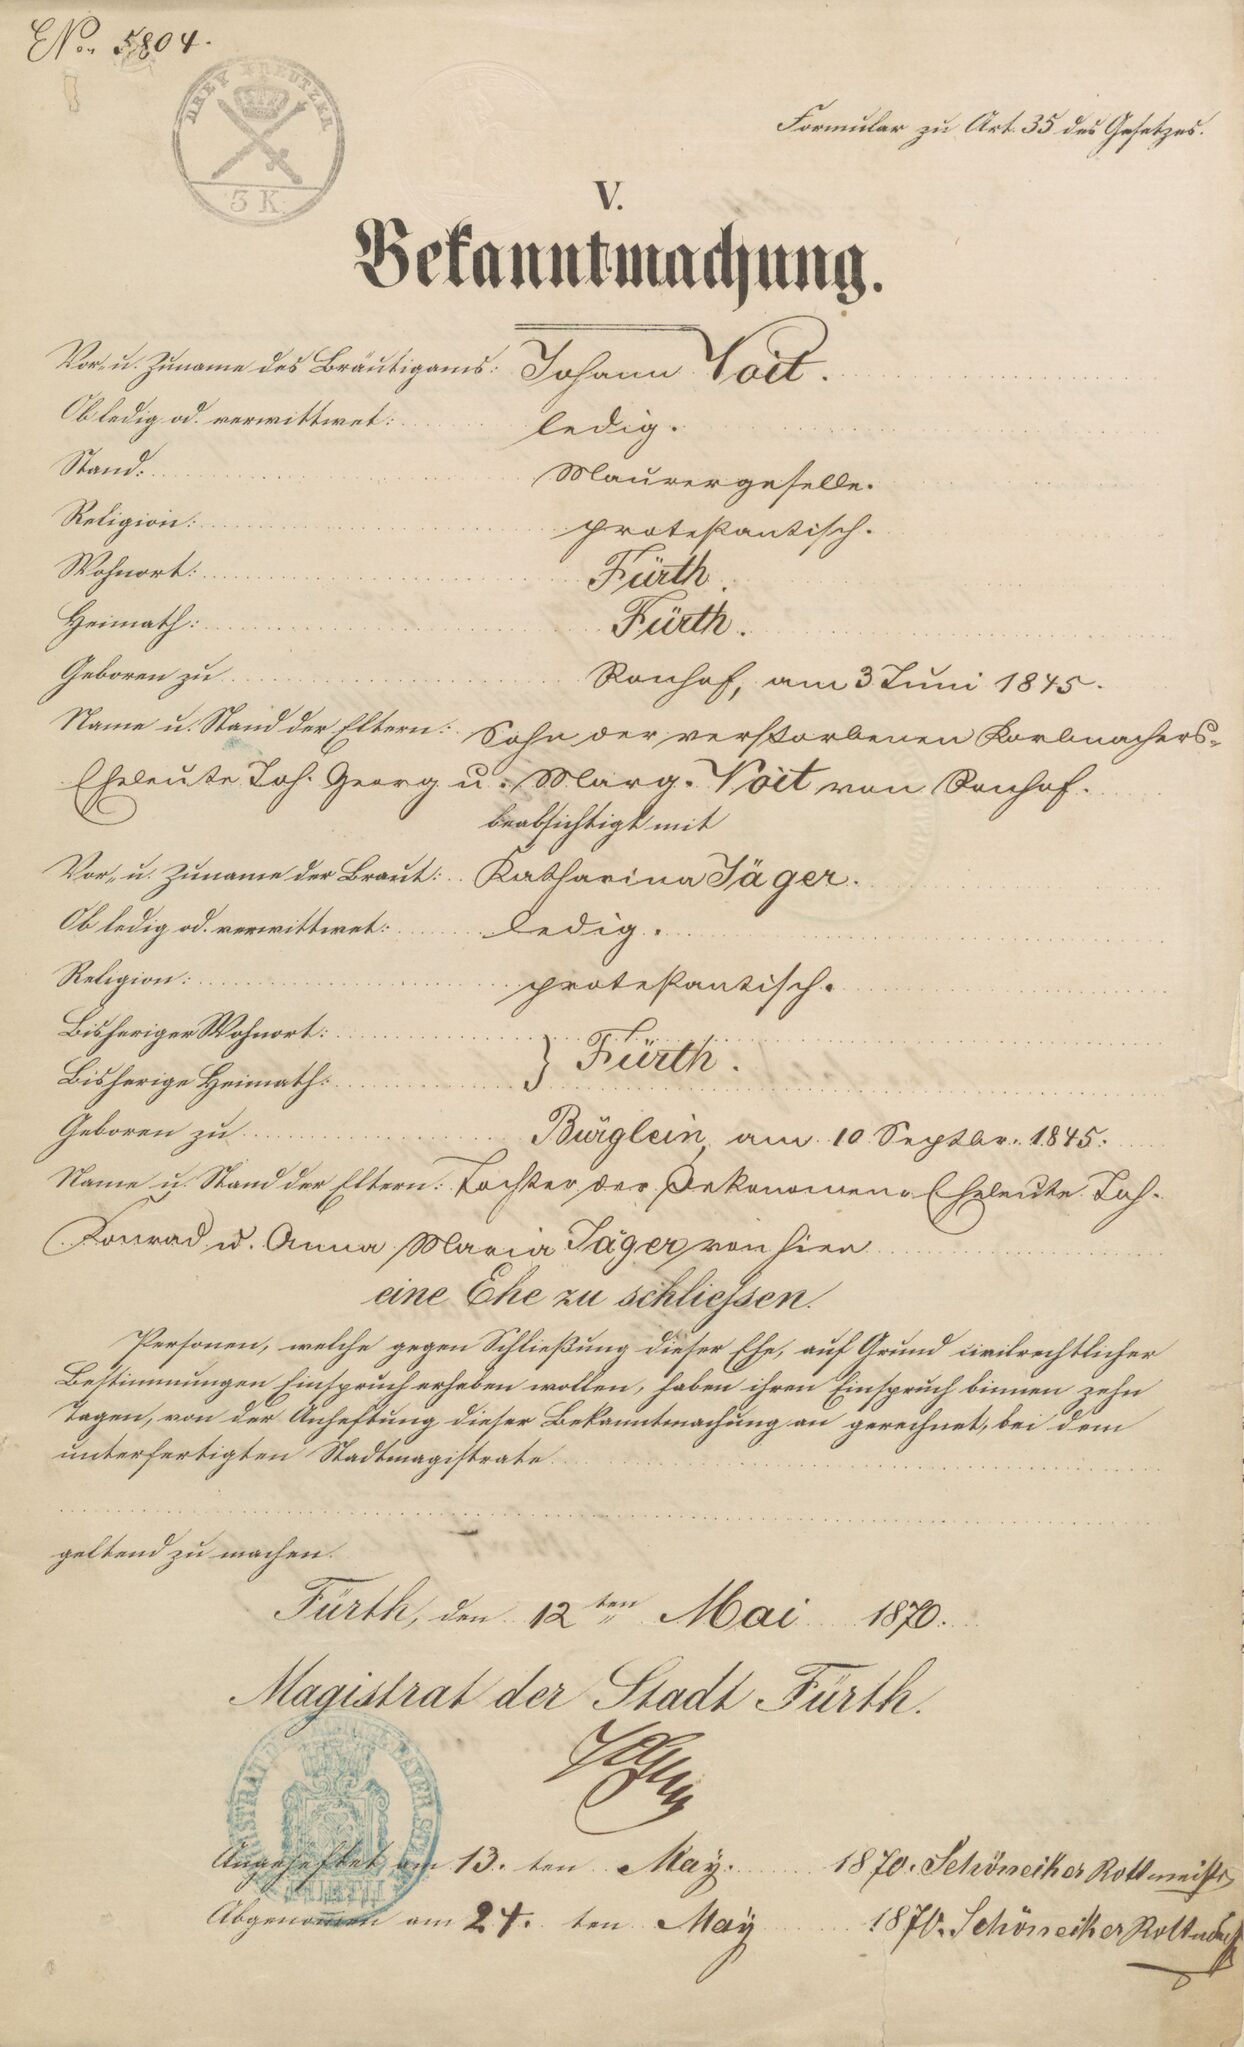 ENo. 5804.
DREY KREUTZER
3 K.
Formular zu Art. 35 des Gesetzes.
V.
Bekanntmachung.
Vor- u. Zuname des Bräutigams: Johann Voit.
Ob ledig od. verwittwet: ledig.
Stand: Maurergeselle.
Religion: protestantisch.
Wohnort: Fürth.
Heimath: Fürth.
Geboren zu Ronhof, am 3 Juni 1845.
Name u. Stand der Eltern: Sohn der verstorbenen Korbmachers-
Eheleute Joh. Georg u. Marg. Voit von Ronhof.
beabsichtigt mit
Vor- u. Zuname der Braut: Katharina Jäger.
Ob ledig od. verwittwet: ledig.
Religion: protestantisch.
Bisheriger Wohnort: } Fürth.
Bisherige Heimath:
Geboren zu Bürglein, am 10 Septbr. 1845.
Name u. Stand der Eltern: Tochter der Oekonomen-Eheleute Joh.
Konrad u. Anna Maria Jäger von hier
eine Ehe zu schliessen.
Personen, welche gegen Schließung dieser Ehe, auf Grund civilrechtlicher
Bestimmungen Einspruch erheben wollen, haben ihren Einspruch binnen zehn
Tagen, von der Anheftung dieser Bekanntmachung an gerechnet, bei dem
unterfertigten Stadtmagistrate
geltend zu machen.
Fürth, den 12ten Mai 1870.
Magistrat der Stadt Fürth.
Angeheftet am 13. ten May. 1870. Schöneiker Rottmeistr
Abgenommen am 24. ten May 1870. Schöneiker